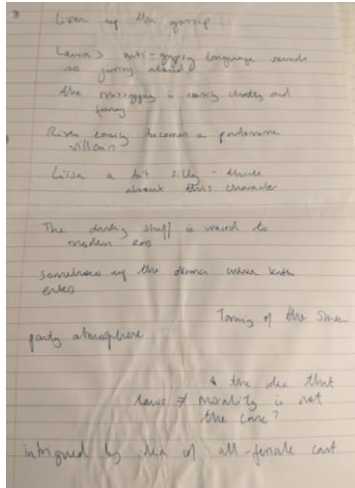 up the gossip
Laura's anti-gypsy language sounds
so jarring aloud
the misogyny is easily
funny
River easily becomes a pantomime
villain
Lissa a bit silly - think
about this character
The stuff is weird to
modern ears
up the drama when
enters
Taming of the Shrew
party atmosphere
& the idea that
laws ≠ morality is not
the case?
intrigued by idea of all-female cast